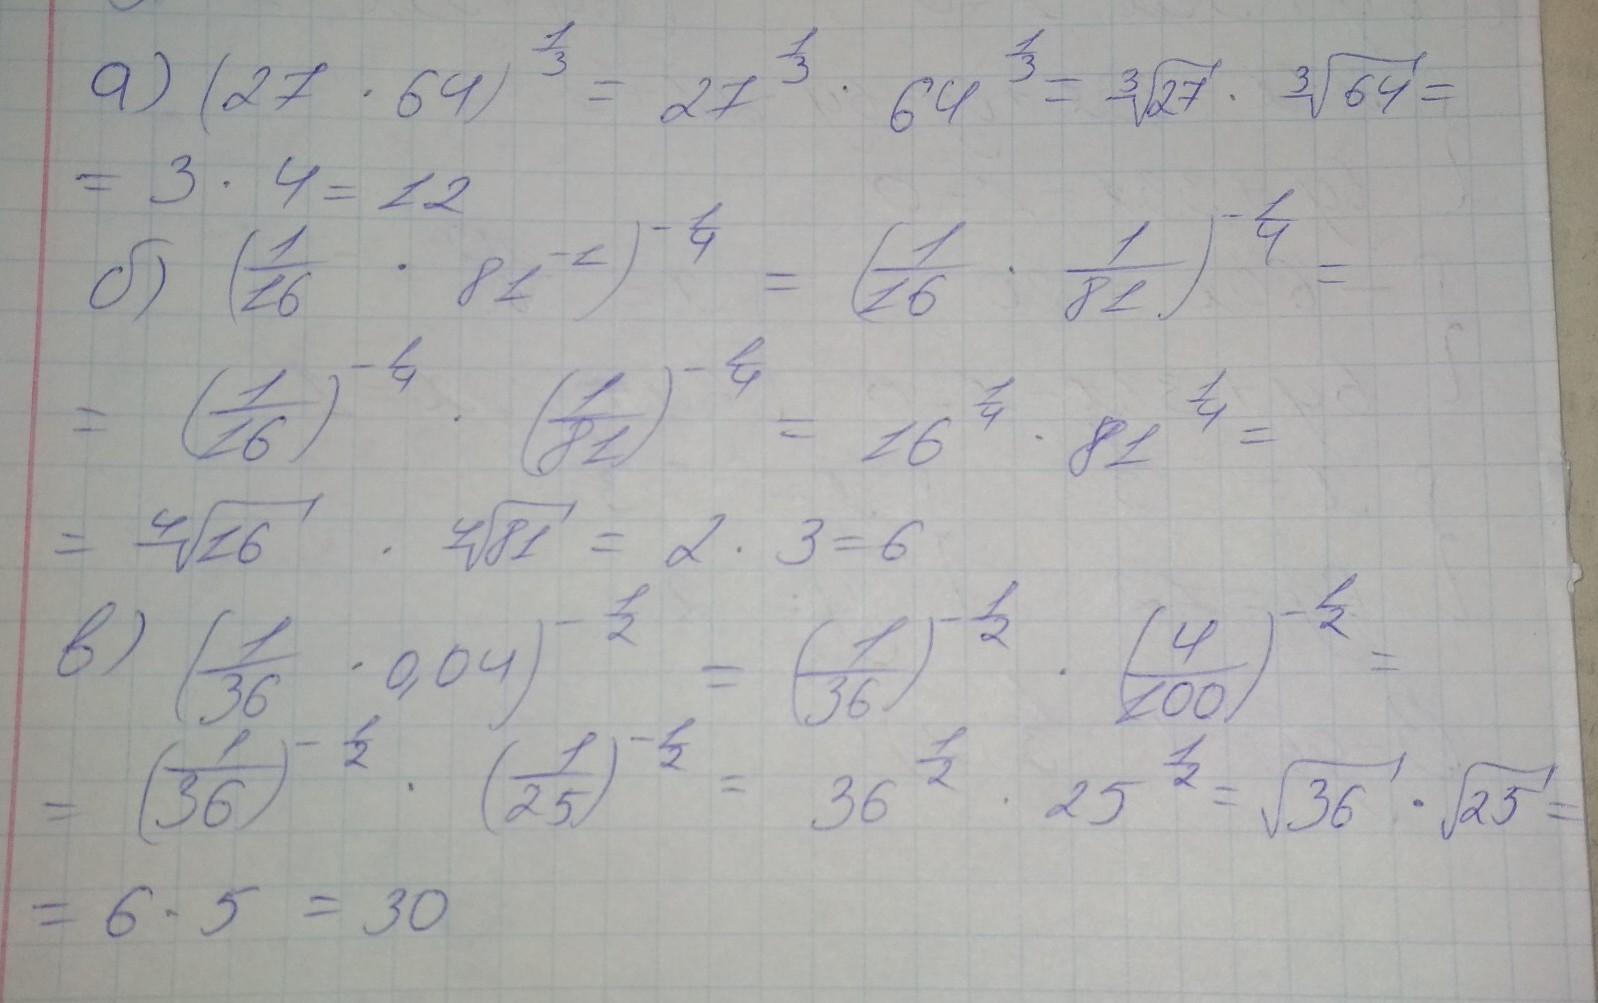 а) (27 · 64)^(1/3) = 27^(1/3) · 64^(1/3) = ∛27 · ∛64 =
= 3 · 4 = 12
б) (1/16 · 81^(-1))^(-1/4) = (1/16 · 1/81)^(-1/4) =
= (1/16)^(-1/4) · (1/81)^(-1/4) = 16^(1/4) · 81^(1/4) =
= ∜16 · ∜81 = 2 · 3 = 6
в) (1/36 · 0,04)^(-1/2) = (1/36)^(-1/2) · (4/100)^(-1/2) =
= (1/36)^(-1/2) · (1/25)^(-1/2) = 36^(1/2) · 25^(1/2) = √36 · √25 =
= 6 · 5 = 30